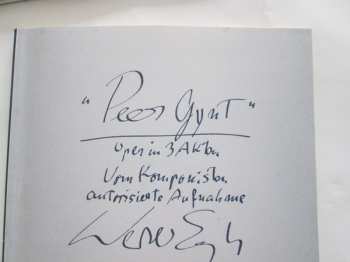 "Peer Gynt"
Oper in 3 Akten
Vom Komponisten
autorisierte Aufnahme
Werner Egk